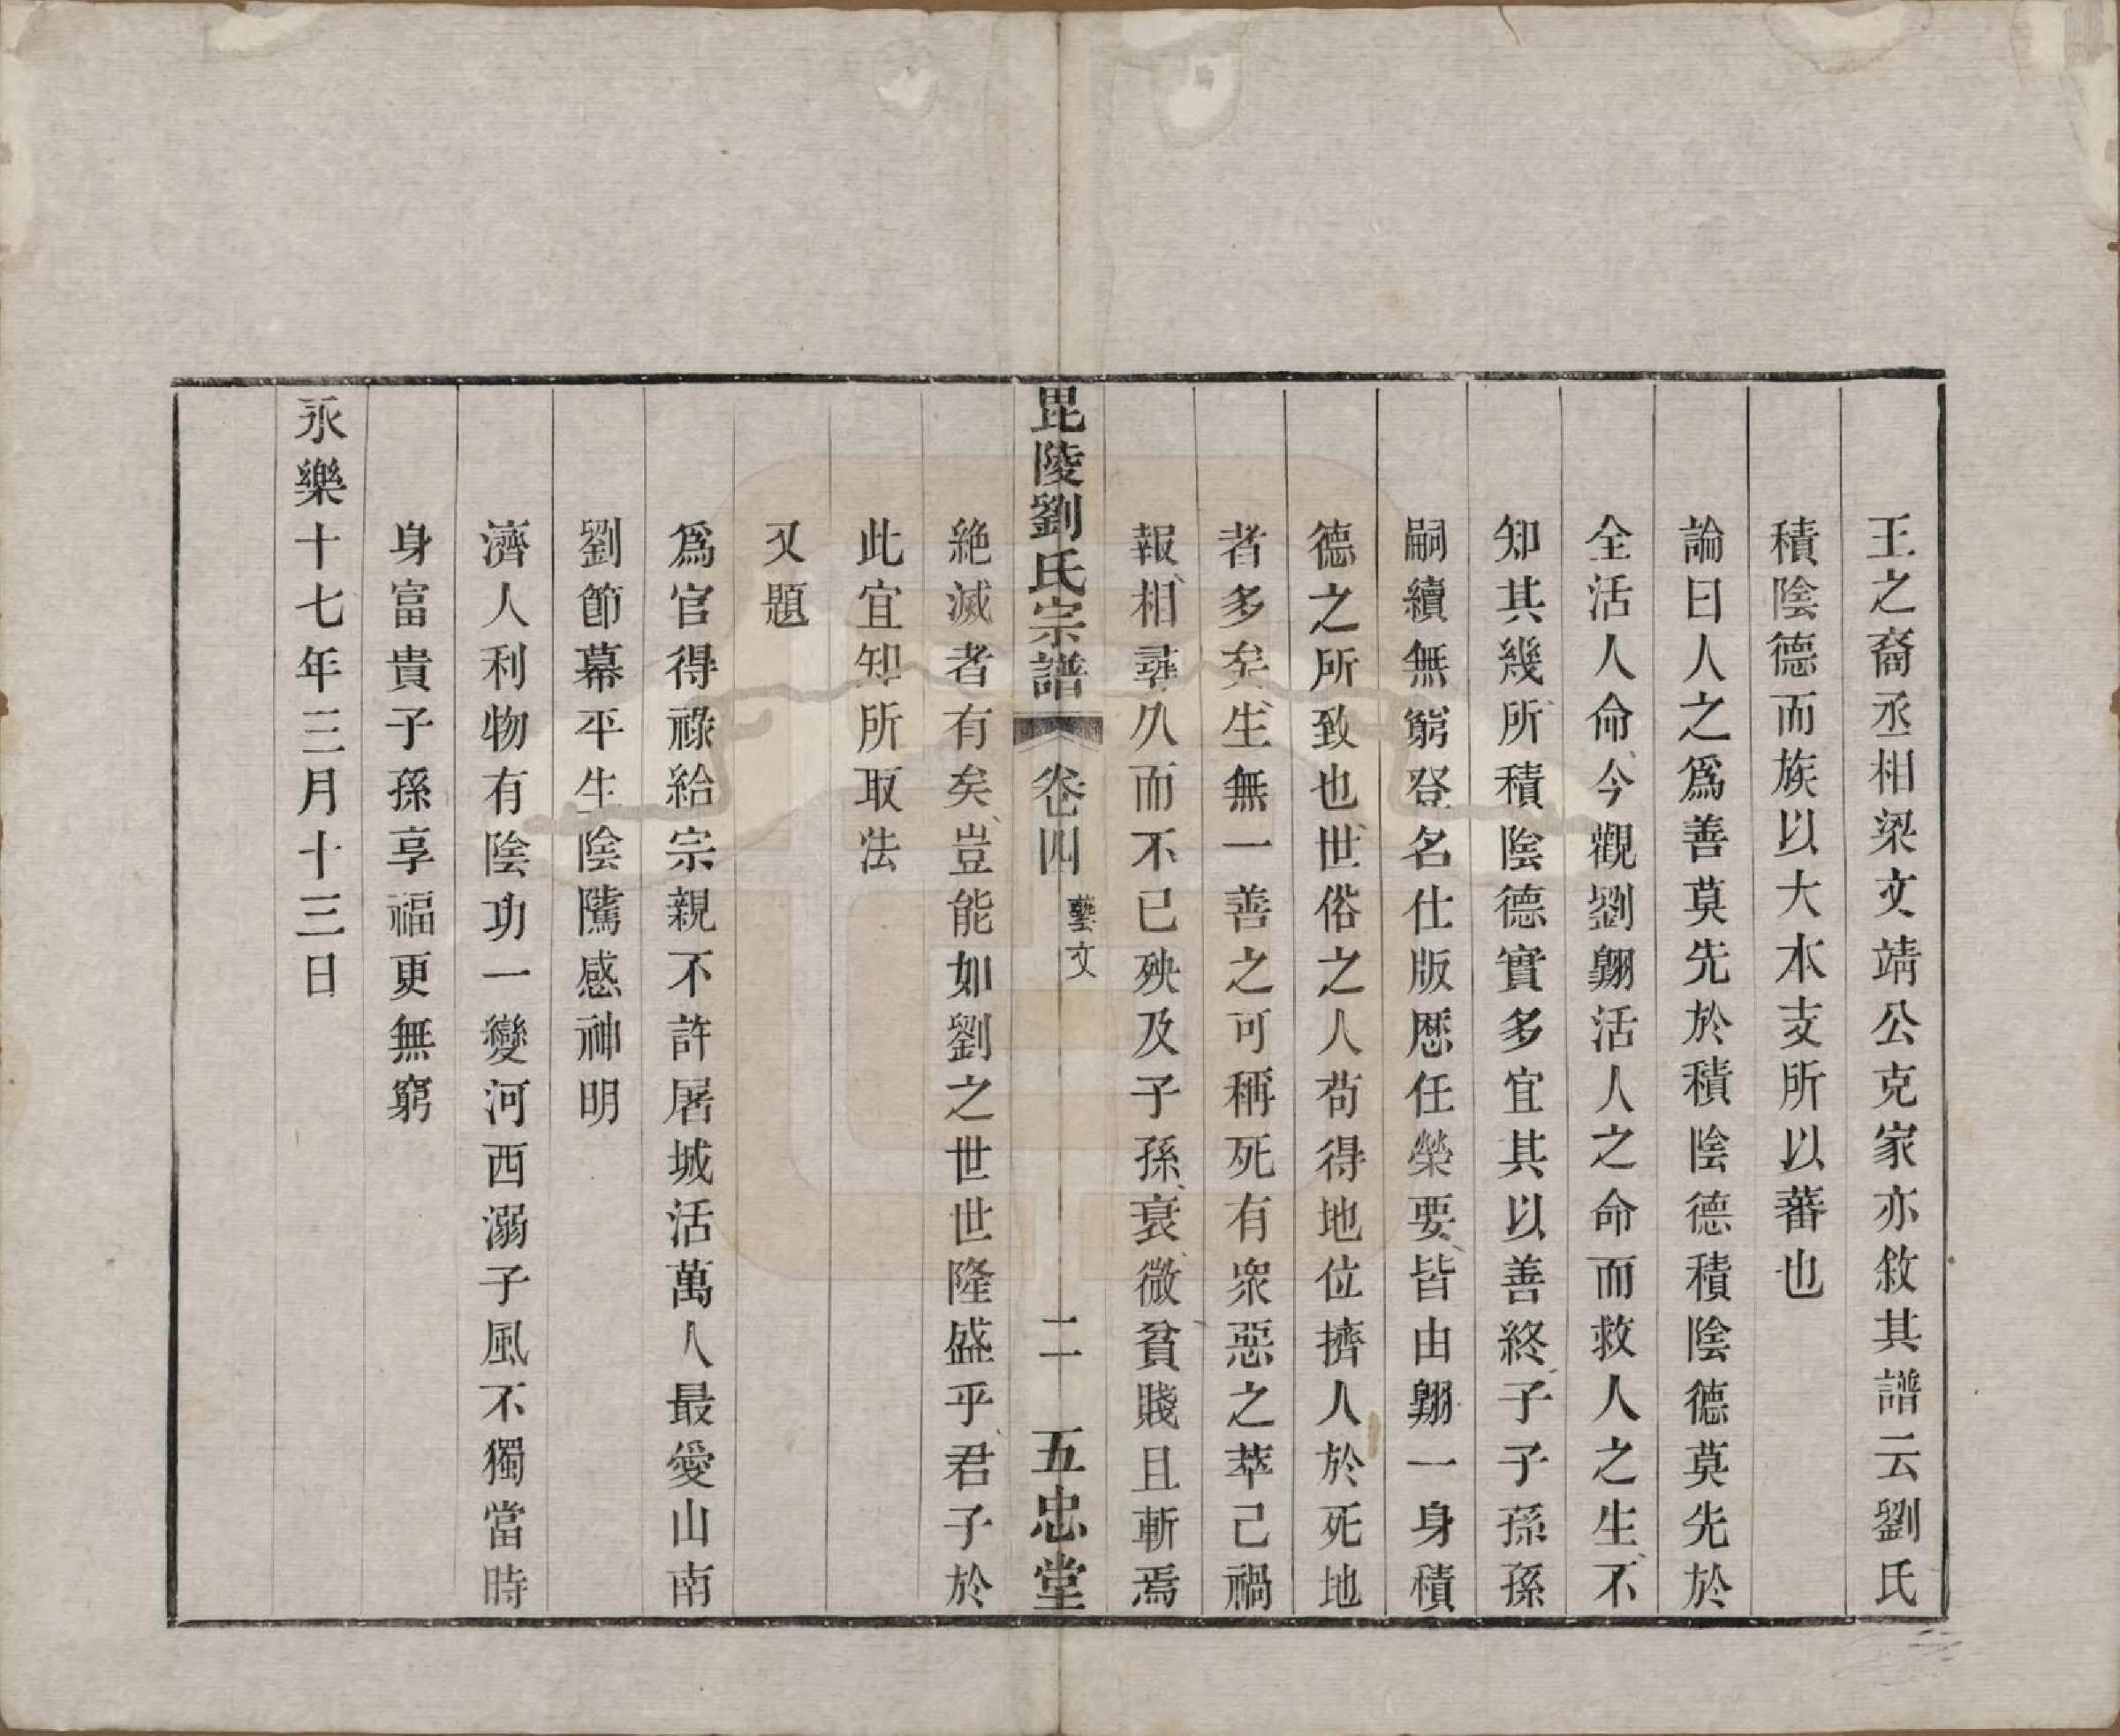 王之裔丞相梁文靖公克家亦敘其譜云劉氏
積陰德而族以大本支所以蕃也
論曰人之爲善莫先於積陰德積陰德莫先於
全活人命今觀劉翺活人之命而救人之生不
知其幾所積陰德實多宜其以善終子子孫孫
嗣續無窮登名仕版歷任榮要皆由翺一身積
德之所致也世俗之人苟得地位擠人於死地
者多矣生無一善之可稱死有衆惡之萃己禍
報相尋久而不已殃及子孫衰微貧賤且斬焉
毘陵劉氏宗譜 卷四 藝文 二 五忠堂
絶滅者有矣豈能如劉之世世隆盛乎君子於
此宜知所取法
又題
爲官得祿給宗親不許屠城活萬人最愛山南
劉節幕平生陰隲感神明
濟人利物有陰功一變河西溺子風不獨當時
身富貴子孫享福更無窮
永樂十七年三月十三日